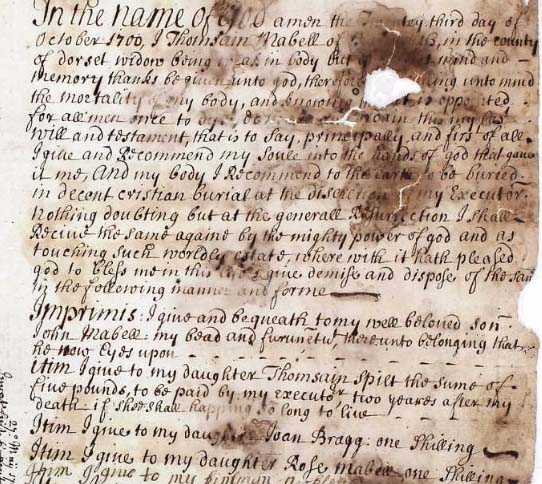 In the name of God amen the twentey third day of
October 1700, I Thomsain Mabell of in the county
of dorset widow being weak in body but of mind and
memory thanks be given unto god, therefore calling unto mind
the mortality of my body, and knowing that it is oppented
for all men once to dye, do ordain this my last
will and testament, that is to say, principally and first of all
I give and Recommend my Soule into the hands of god that gave
it me, And my body I Recommend to the earth to be buried
in decent cristian burial at the discretion of my Executor
nothing doubting but at the generall Resurrection I shall
Recive the same againe by the mighty power of god and as
touching such worldly estate, where with it hath pleased
god to bless me in this life I give demise and dispose of the same
in the following manner and forme
Imprimis: I give and bequeath to my well beloved son
John Mabell: my bead and furunetu thereunto belonging that
he now Eyes upon
itim I give to my daughter Thomsain Spilt the sume of
five pounds, to be paid by my executor two yeares after my
death if shee shall happing so long to live
Itim I give to my daughter Joan Bragg: one Shilling
Itim I give to my daughter Rose Mabell one Shilling
Itim I give to my